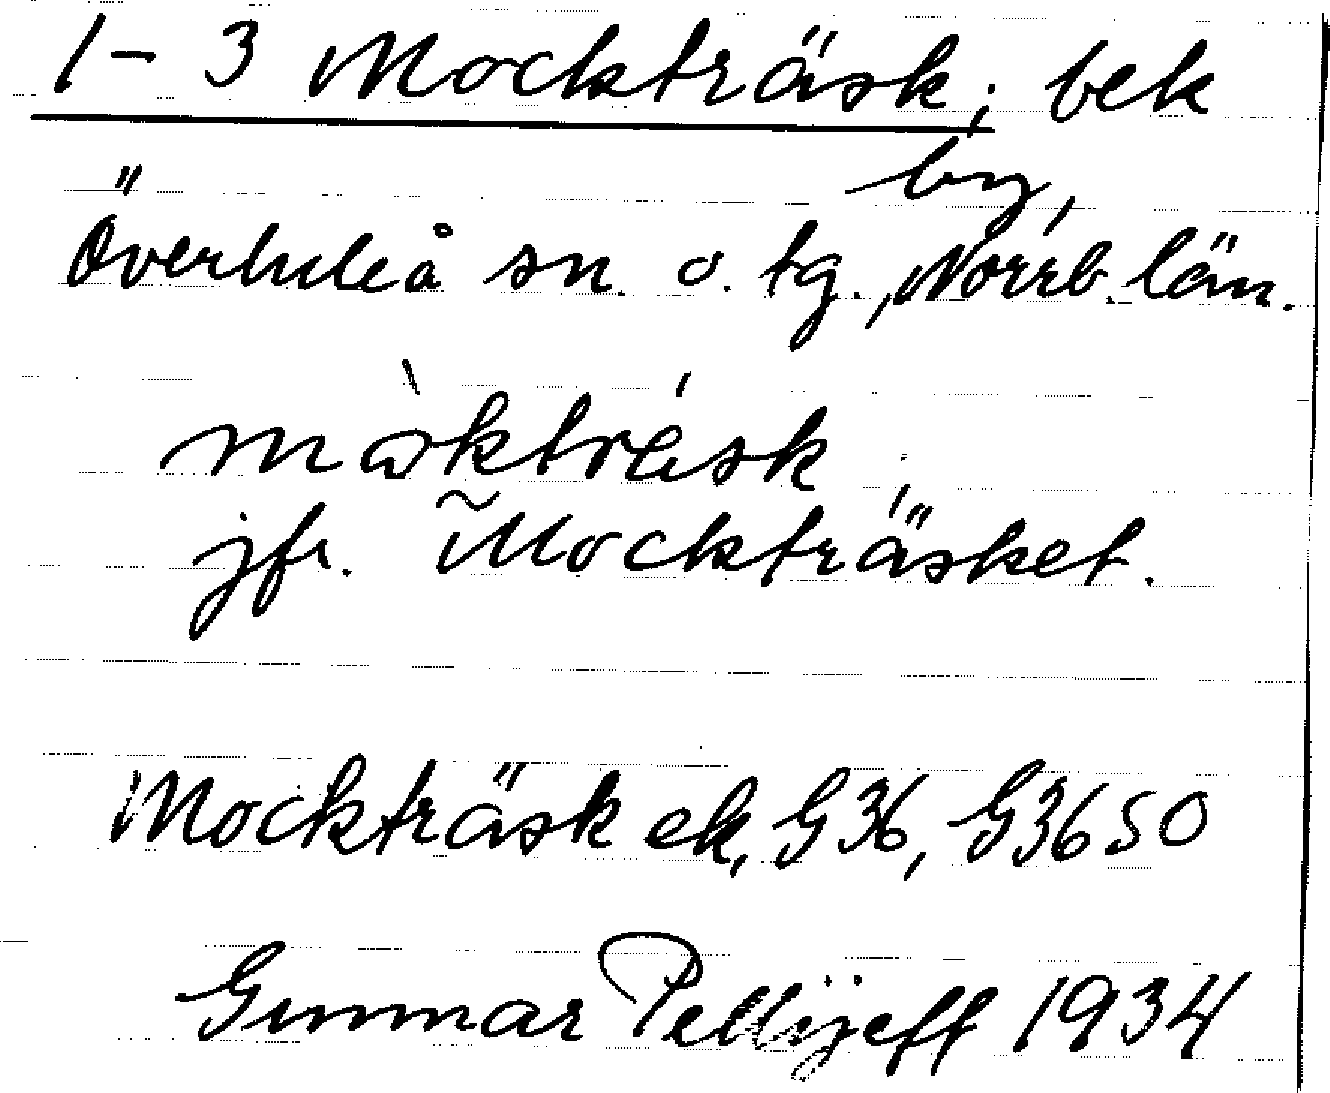 1-3 Mockträsk; bek
by,
Överluleå sn. o. tg., Norrb. län.
jfr. ~Mockträsket.
Mockträsk ek, G36, G3650
Gunnar Pellijeff 1934